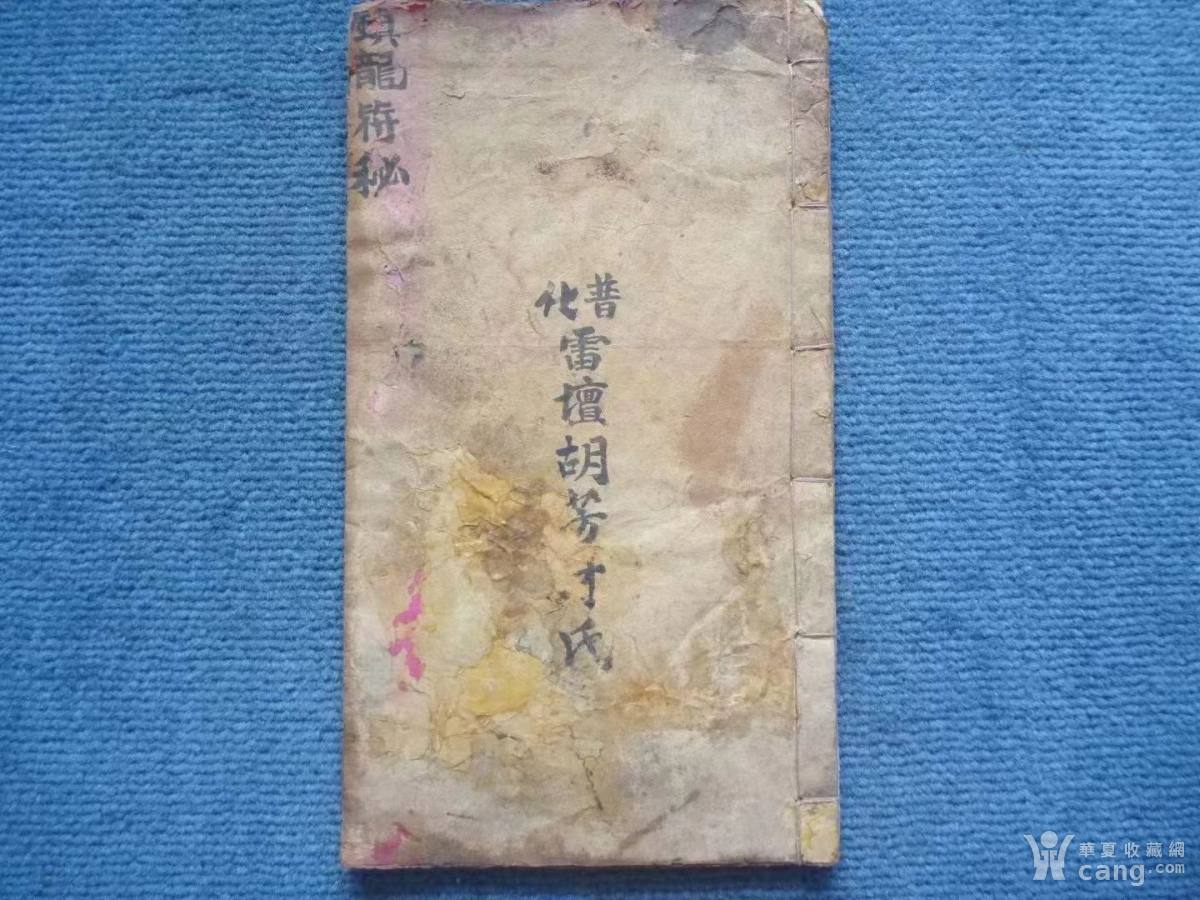 鎮龍符秘
普化
雷壇胡芳才氏
華夏收藏網
cang.com